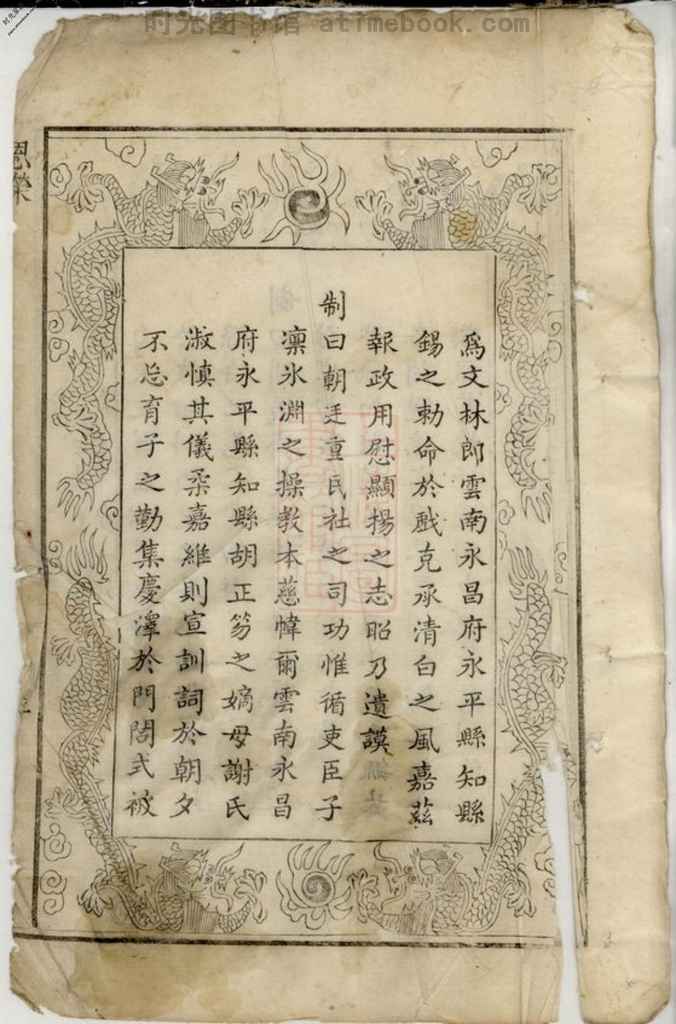 时光图书馆 atimebook.com
恩榮
爲文林郎雲南永昌府永平縣知縣
錫之勅命於戲克承清白之風嘉茲
報政用慰顯揚之志昭乃遺謨
制曰朝廷重民社之司功惟循吏臣子
凜氷淵之操教本慈幃爾雲南永昌
府永平縣知縣胡正笏之嫡母謝氏
淑慎其儀柔嘉維則宣訓詞於朝夕
不忘育子之勤集慶澤於門閭式被